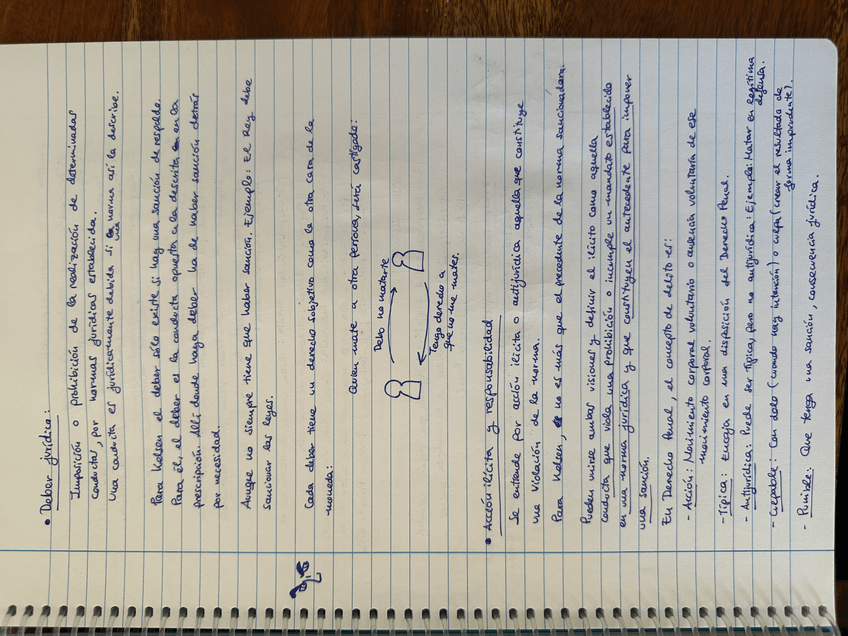 • Deber jurídico:
Imposición o prohibición de la realización de determinadas
conductas, por normas jurídicas establecida.
Una conducta es jurídicamente debida si una norma así la describe.
Para Kelsen el deber sólo existe si hay una sanción de respaldo.
Para él, el deber es la conducta opuesta a la descrita en la
prescripción. Allí donde haya deber ha de haber sanción detrás
por necesidad.
Aunque no siempre tiene que haber sanción. Ejemplo: El Rey debe
sancionar las leyes.
Cada deber tiene un derecho subjetivo como la otra cara de la
moneda:
Quien mate a otra persona, será castigado:
Debo no matarte
Tengo derecho a
que no me mates.
• Acción ilícita y responsabilidad
Se entiende por acción ilícita o antijurídica aquella que constituye
una violación de la norma.
Para Kelsen, no es más que el precedente de la norma sancionadora.
Pueden unirse ambas visiones y definir el ilícito como aquella
conducta que viola una prohibición o incumple un mandato establecido
en una norma jurídica y que constituyen el antecedente para imponer
una sanción.
En Derecho Penal, el concepto de delito es:
- Acción: Movimiento corporal voluntario o ausencia voluntaria de ese
movimiento corporal.
- Típica: Encaja en una disposición del Derecho Penal.
- Antijurídica: Puede ser típica, pero no antijurídica: Ejemplo: Matar en legítima
defensa.
- Culpable: Con dolo (cuando hay intención) o culpa (crear el resultado de
forma imprudente).
- Punible: Que tenga una sanción, consecuencia jurídica.